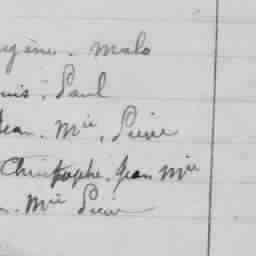 ugène. Malo
uis. Paul
Jean. Mie. Pierre
Christophe. Jean Mie
n. Mie Pierre